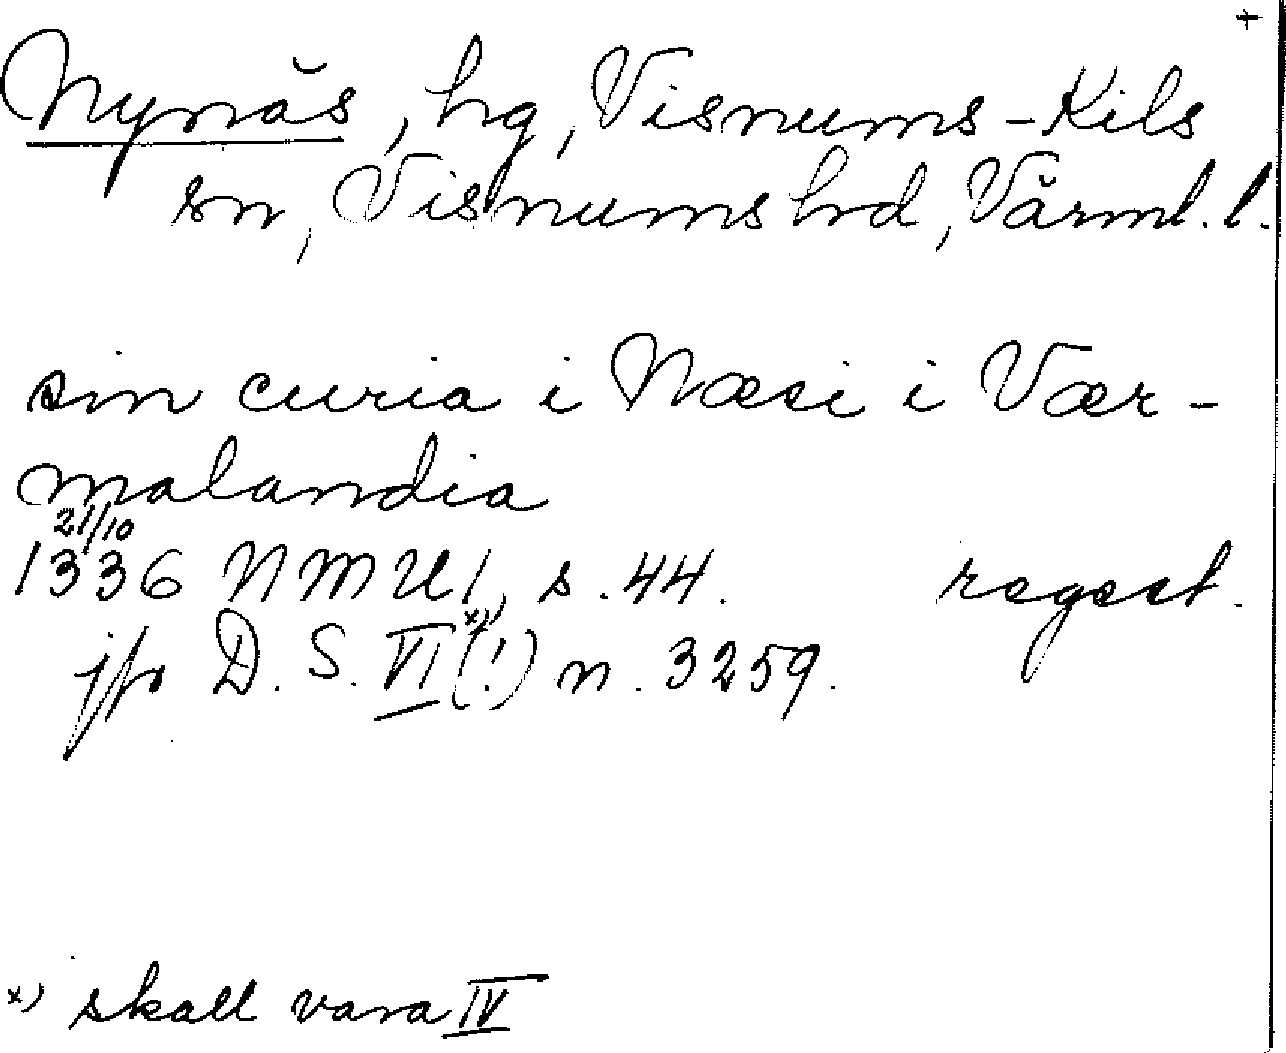 +
Nynäs, hg, Visnums-Kils
sn, Visnums hrd, Värml. l.
sin curia i Næsi i Vær-
malandia
21/10
1336 NMU 1, s. 44. regest.
jfr D. S. VI x) (!) n. 3259.
x) skall vara IV